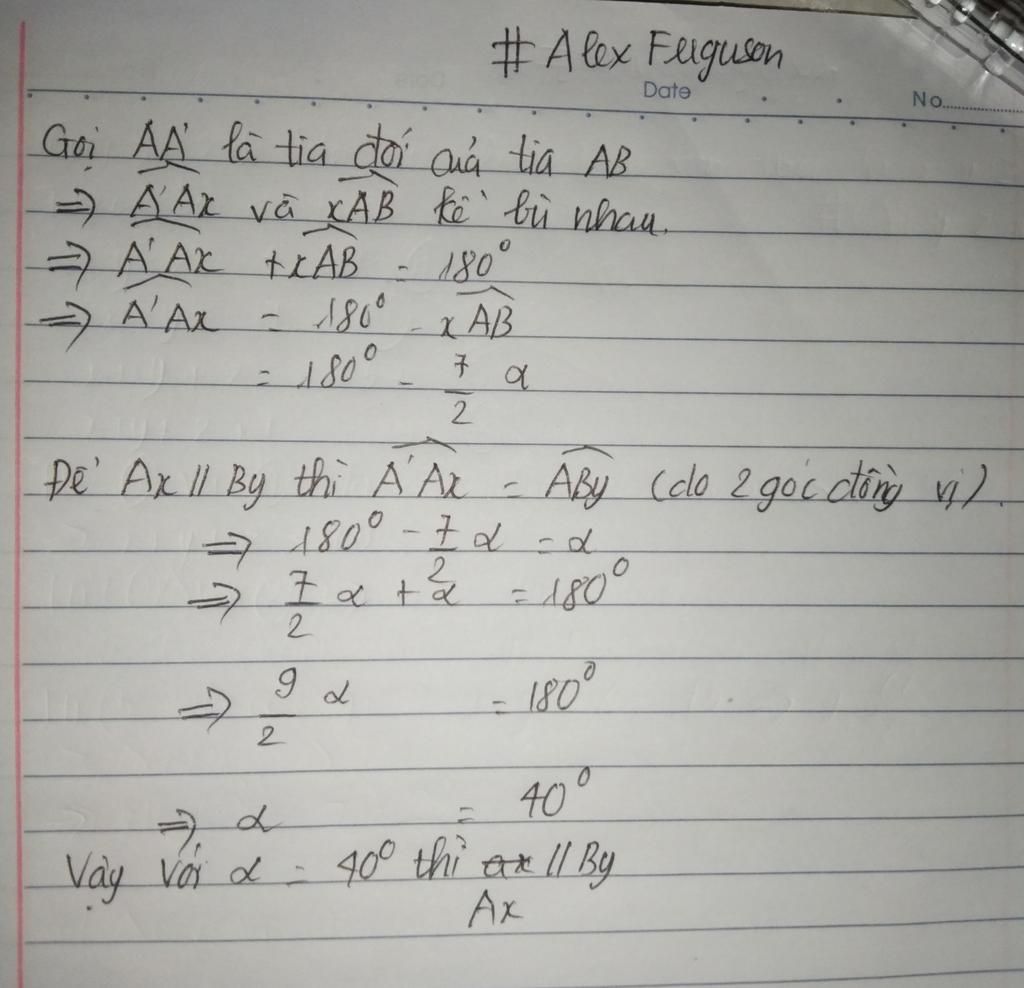 # Alex Ferguson
Date
No
Gọi AA' là tia đối của tia AB
=> A'Ax và xAB kề bù nhau.
=> A'Ax + xAB = 180°
=> A'Ax = 180° - xAB
= 180° - 7/2 α
Để Ax // By thì A'Ax = ABy (do 2 góc đồng vị).
=> 180° - 7/2 α = α
=> 7/2 α + α = 180°
=> 9/2 α = 180°
=> α = 40°
Vậy với α = 40° thì Ax // By